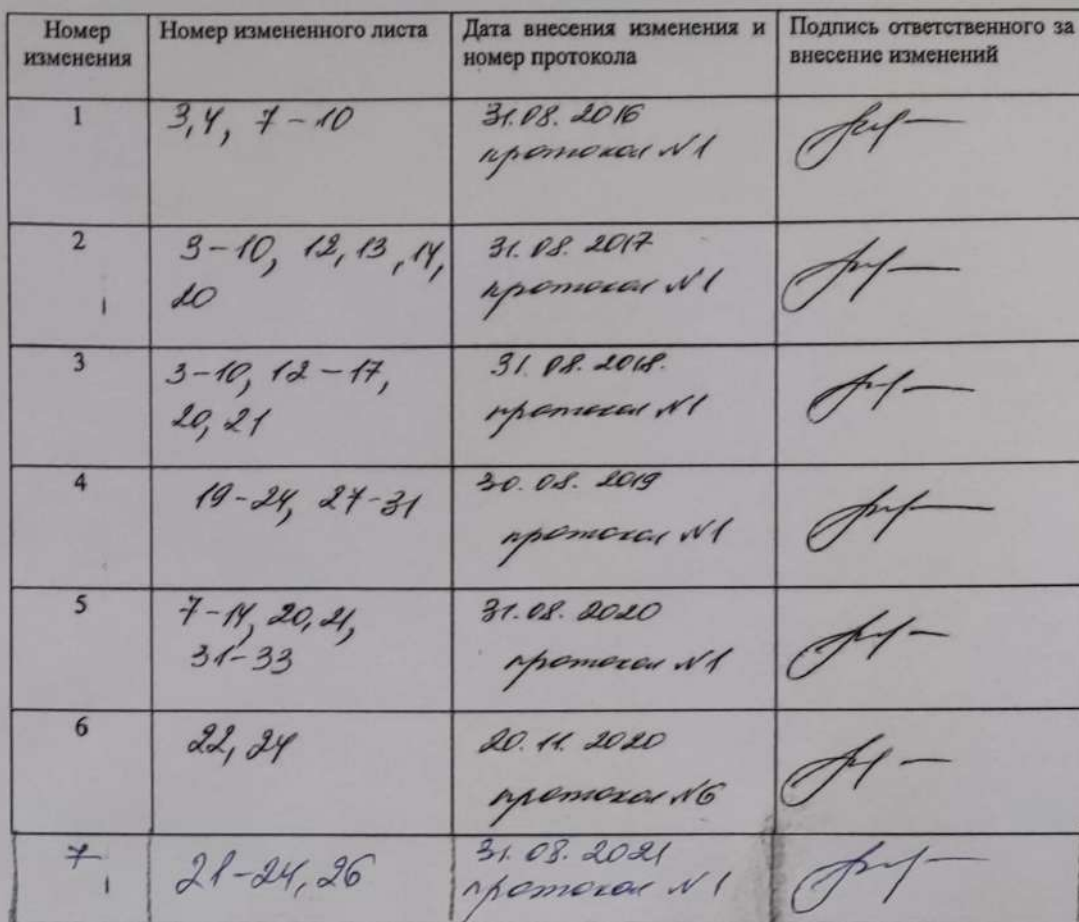 Номер изменения
Номер измененного листа
Дата внесения изменения и номер протокола
Подпись ответственного за внесение изменений
1
3,4, 7-10
31.08.2016
протокол №1
2
3-10, 12, 13, 14,
20
31.08.2017
протокол №1
3
3-10, 12-17,
20, 21
31.08.2018.
протокол №1
4
19-24, 27-31
30.08.2019
протокол №1
5
7-14, 20, 21,
31-33
31.08.2020
протокол №1
6
22, 24
20.11.2020
протокол №6
7
21-24, 26
31.08.2021
протокол №1